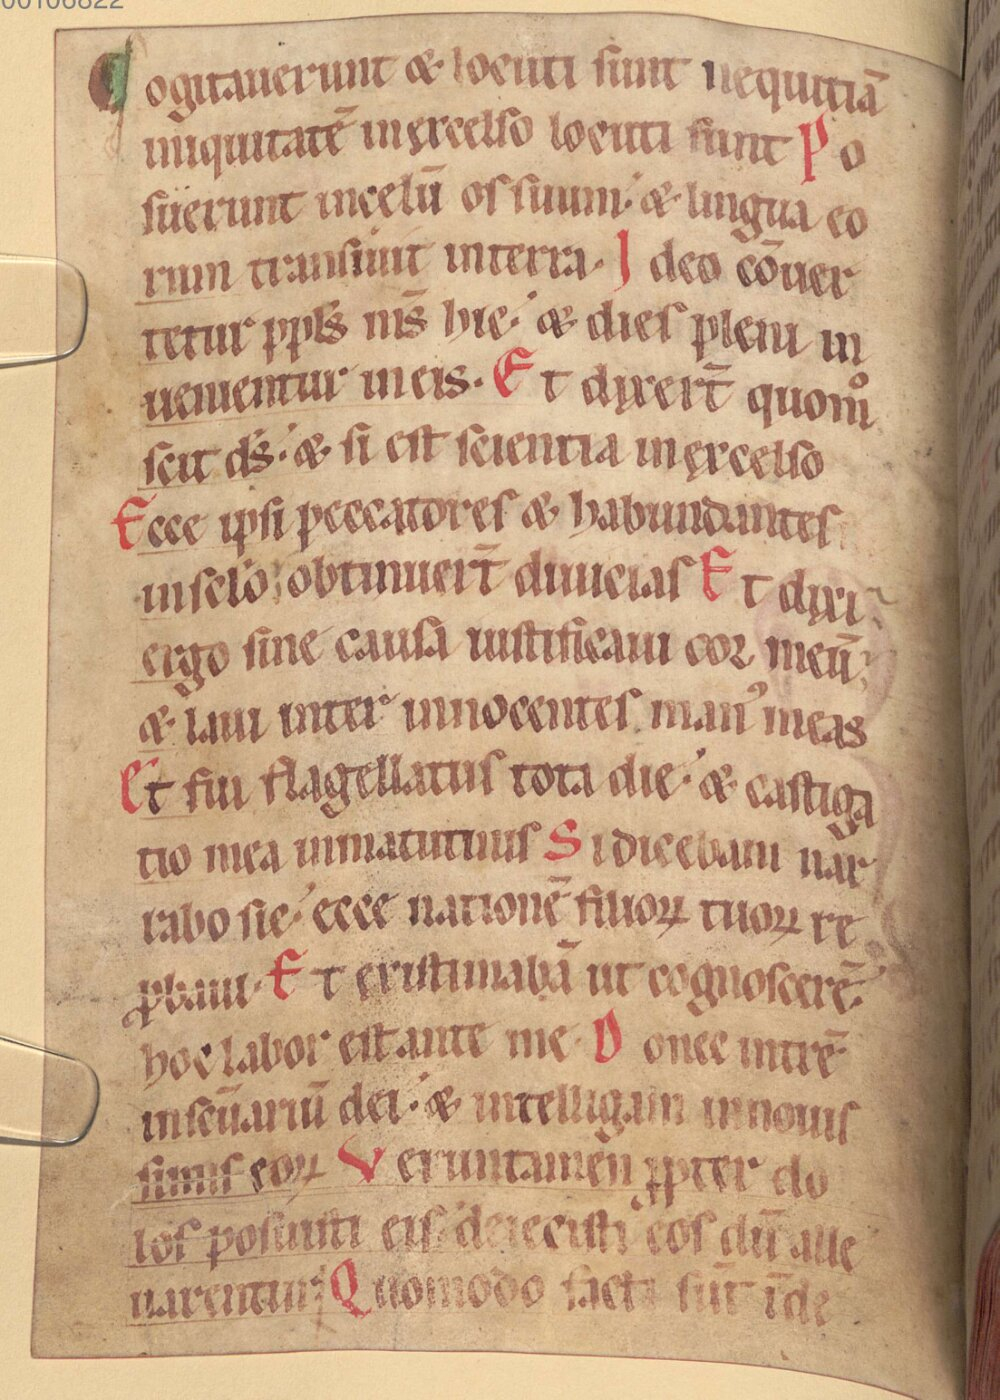 00106822
Cogitauerunt & locuti sunt nequitiā
iniquitatē inexcelso locuti sunt Po
suerunt incelū os suum· & lingua eo
rum transiuit interra· Ideo cōuer
tetur ppls ms̄ hic· & dies pleni in
uenientur ineis· Et dixert̄ quom̊
scit ds̄· & si est scientia inexcelso
Ecce ipsi peccatores & habundantes
insclo obtinuert̄ diuicias Et dixi
ergo sine causa iustificaui cor meū
& laui inter innocentes man' meas
Et fui flagellatus tota die· & castiga
tio mea inmatutinis Si dicebam nar
rabo sic· ecce nationē filioꝝ tuoꝝ re
ꝓbaui· Et existimabā ut cognoscerē
hoc labor est ante me· Donec intrē
inscūariū dei· & intelligam innouis
simis eoꝝ Veruntamen ꝓpter do
los posuisti eis deiecisti eos dū alle
uarentur· Quomodo facti sūt ī de